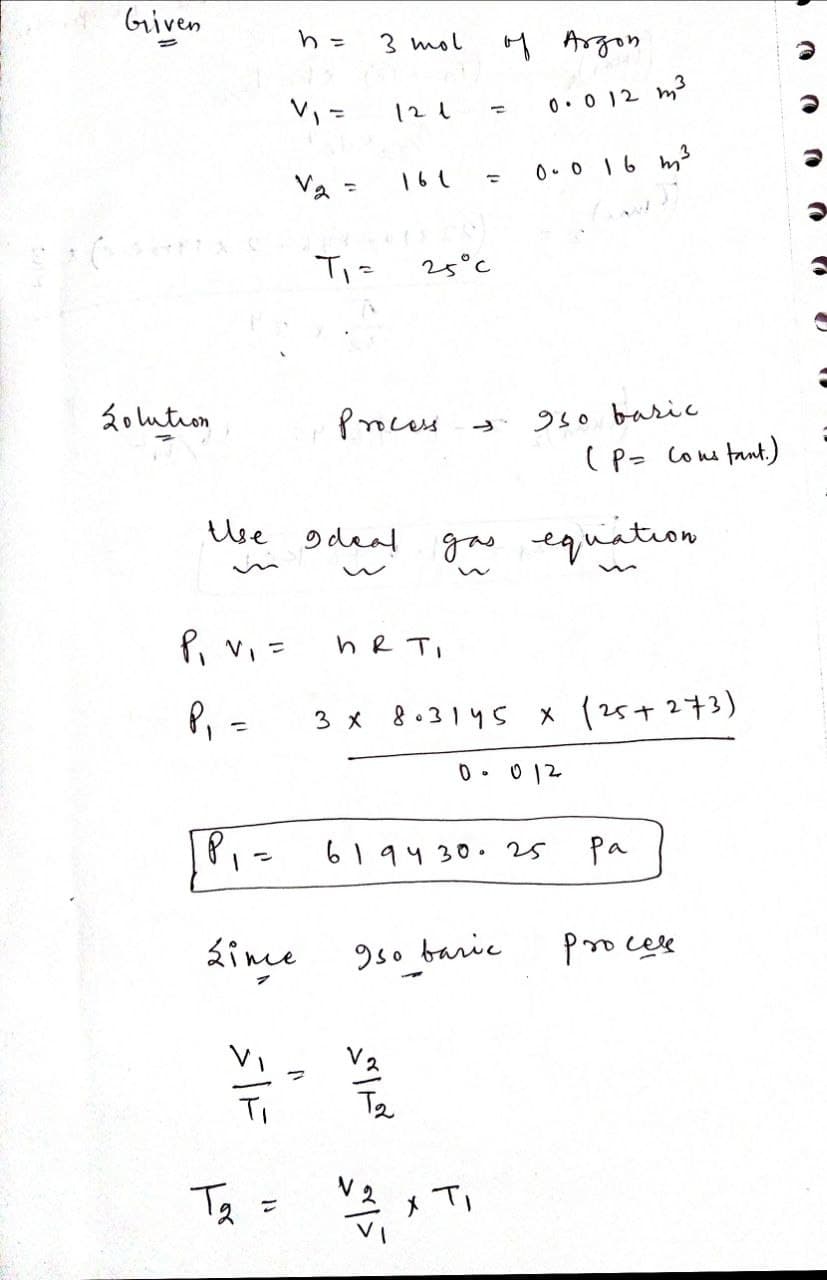 Given
n = 3 mol of Argon
V₁ = 12 l = 0.012 m³
V₂ = 16 l = 0.016 m³
T₁ = 25°C
Solution Process → Isobaric
(P = Constant.)
Use Ideal gas equation
P₁ V₁ = n R T₁
P₁ = 3 × 8.3145 × (25 + 273)
0.012
P₁ = 619430.25 Pa
Since Isobaric Process
V₁ = V₂
T₁ T₂
T₂ = V₂ × T₁
V₁